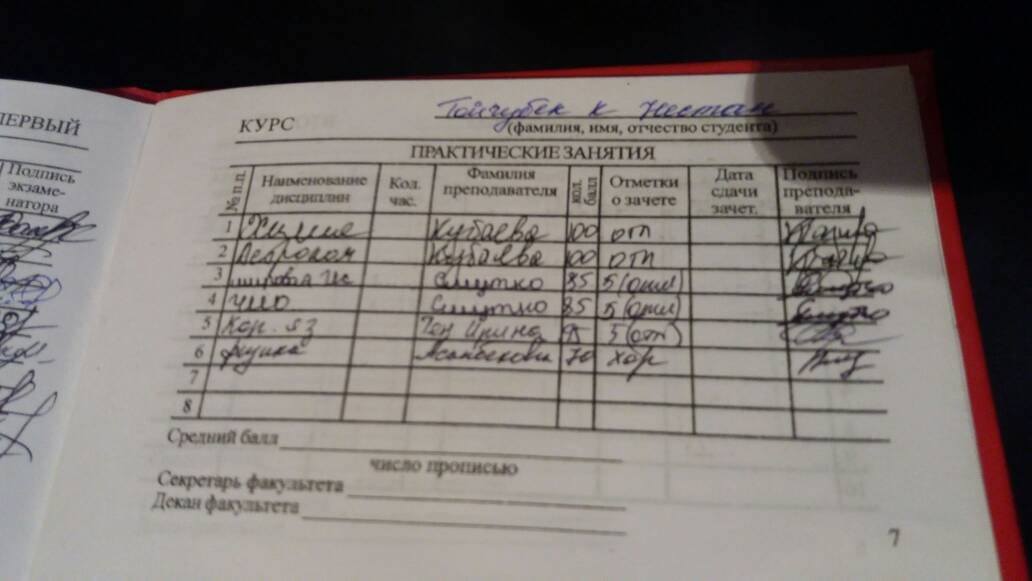 ПЕРВЫЙ
Подпись
экзаме-
натора
КУРС Тойчубек к Нестан
(фамилия, имя, отчество студента)
ПРАКТИЧЕСКИЕ ЗАНЯТИЯ
№ п.п. Наименование дисциплин Кол. час. Фамилия преподавателя кол. балл Отметки о зачете Дата сдачи зачет. Подпись препода- вателя
1 Химия Кубаева 100 отл
2 Кубаева 100 отл
3 Смутко 85 5 (отл)
4 Смутко 85 5 (отл)
5 Кор. яз Тен Ирина 95 5 (от)
6 физика Асанбекова 70 хор
7
8
Средний балл
число прописью
Секретарь факультета
Декан факультета
7